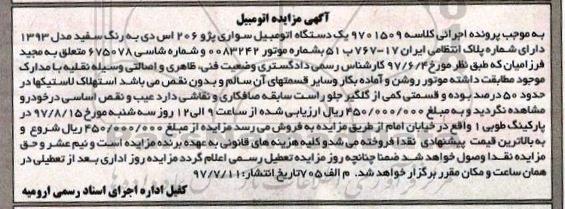 آگهی مزایده اتومبیل
به موجب پرونده اجرائی کلاسه 9701509 یک دستگاه اتومبیل سواری پژو 206 اس دی به رنگ سفید مدل 1393
دارای شماره پلاک انتظامی ایران 17-767 ب 51 بشماره موتور 0083242 و شماره شاسی 675078 متعلق به مجید
فرزامیان که طبق نظر مورخ 97/6/4 کارشناس رسمی دادگستری وضعیت فنی، ظاهری و اصالتی وسیله نقلیه با مدارک
موجود مطابقت داشته موتور روشن و آماده بکار وسایر قسمتهای آن سالم و بدون نقص می باشد استهلاک لاستیکها در
حدود 50 درصد بوده و قسمتی کمی از گلگیر جلو راست سابقه صافکاری و نقاشی دارد عیب و نقص اساسی درخودرو
مشاهده نگردید و به مبلغ 450/000/000 ریال ارزیابی شده از ساعت 9 الی 12 روز سه شنبه مورخ 97/8/15 در
پارکینگ طوبی 1 واقع در خیابان امام از طریق مزایده به فروش می رسد مزایده از مبلغ 450/000/000 ریال شروع و
به بالاترین قیمت پیشنهادی نقدا فروخته می شدو کلیه هزینه های قانونی به عهده برنده مزایده است و نیم عشر و حق
مزایده نقدا وصول خواهد شد ضمنا چنانچه روز مزایده تعطیل رسمی اعلام گردد مزایده روز اداری بعد از تعطیلی در
همان ساعت و مکان مقرر برگزار خواهد شد. م الف 705 تاریخ انتشار: 97/7/11
کفیل اداره اجرای اسناد رسمی ارومیه